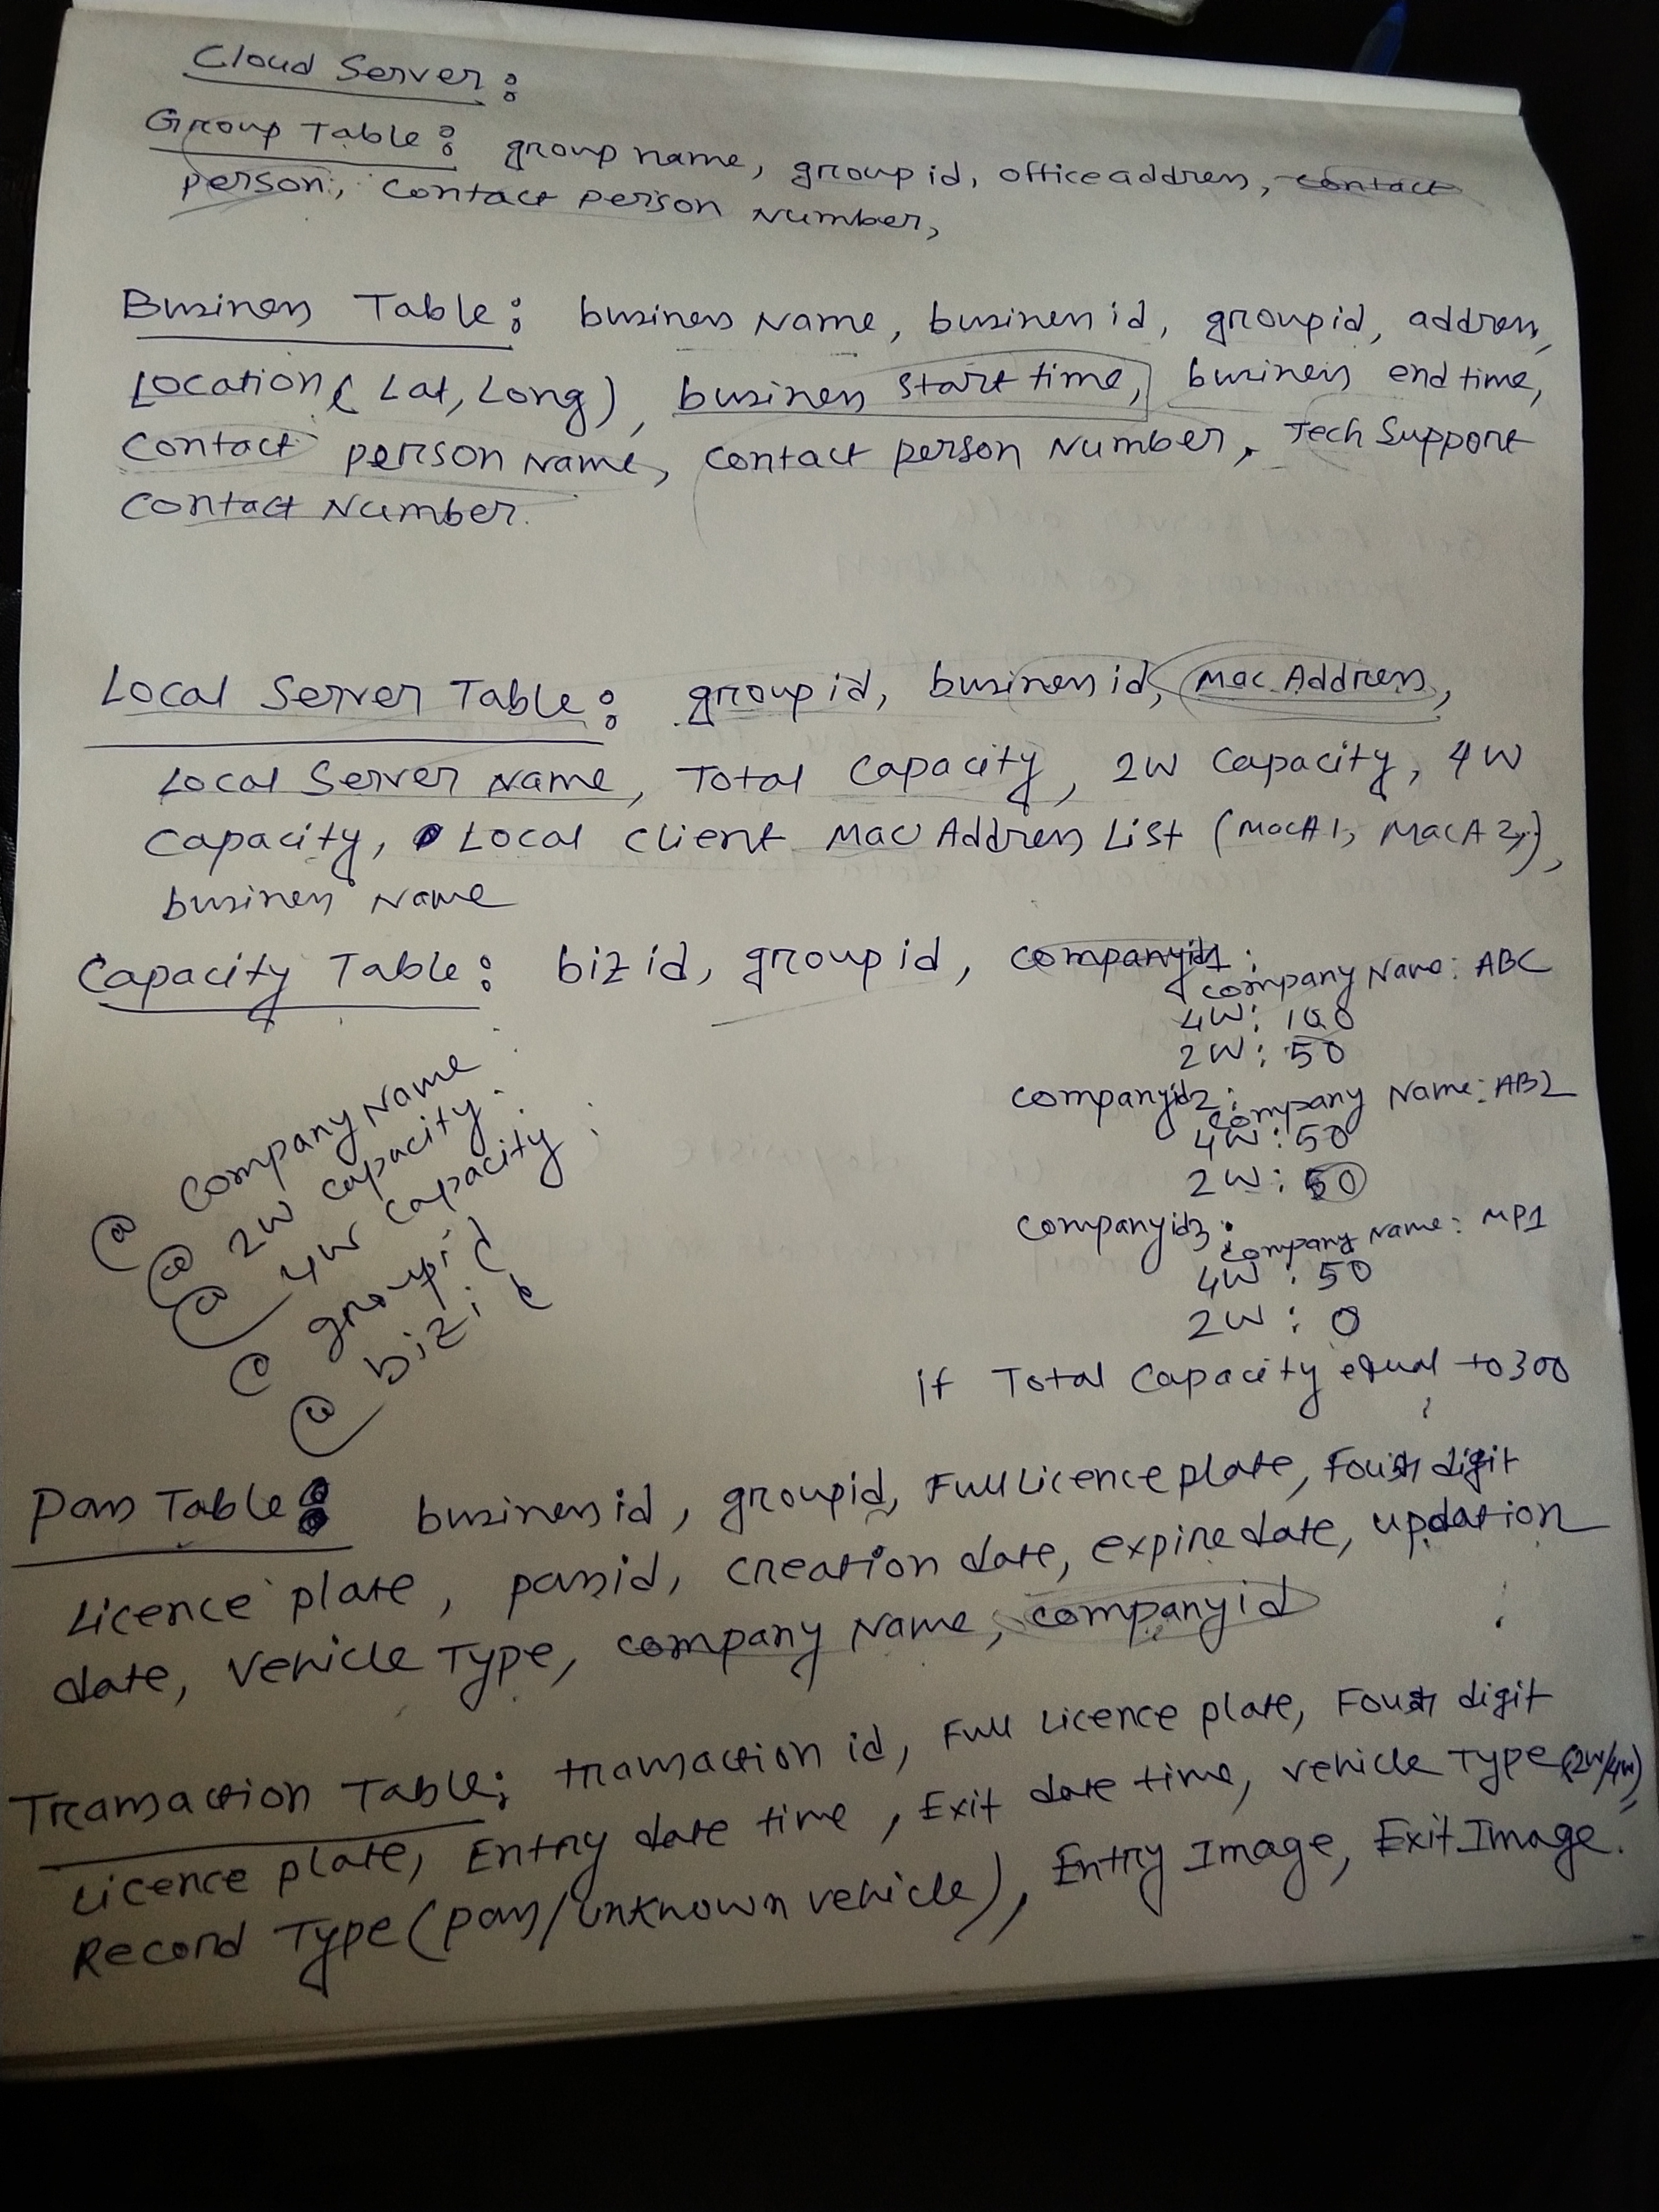 Cloud Server:
Group Table: group name, group id, office address, contact
person, contact person Number,
Business Table: business Name, business id, groupid, address,
Location ( Lat, Long), business start time, business end time,
Contact person Name, contact person Number, Tech Support
Contact Number.
Local Server Table: group id, business id, Mac Address,
Local Server Name, Total Capacity, 2W Capacity, 4W
Capacity, Local Client Mac Address List (MacA1, MacA2,.),
business Name
Capacity Table: biz id, group id, companyid1:
Company Name: ABC
4W: 100
2W: 50
Companyid2:
Company Name: AB2
4W: 50
2W: 50
Companyid3:
Company Name: MP1
4W: 50
2W: 0
if Total Capacity equal to 300
@ Company Name:
@ 2W capacity:
@ 4W capacity:
@ groupid
@ bizid
Pass Table: business id, groupid, Full Licence plate, Four digit
Licence plate, passid, creation date, expire date, updation
date, Vehicle Type, company Name, companyid
Transaction Table: transaction id, Full Licence plate, Four digit
Licence plate, Entry date time, Exit date time, vehicle Type (2W/4W),
Record Type (pass/unknown vehicle), Entry Image, Exit Image.